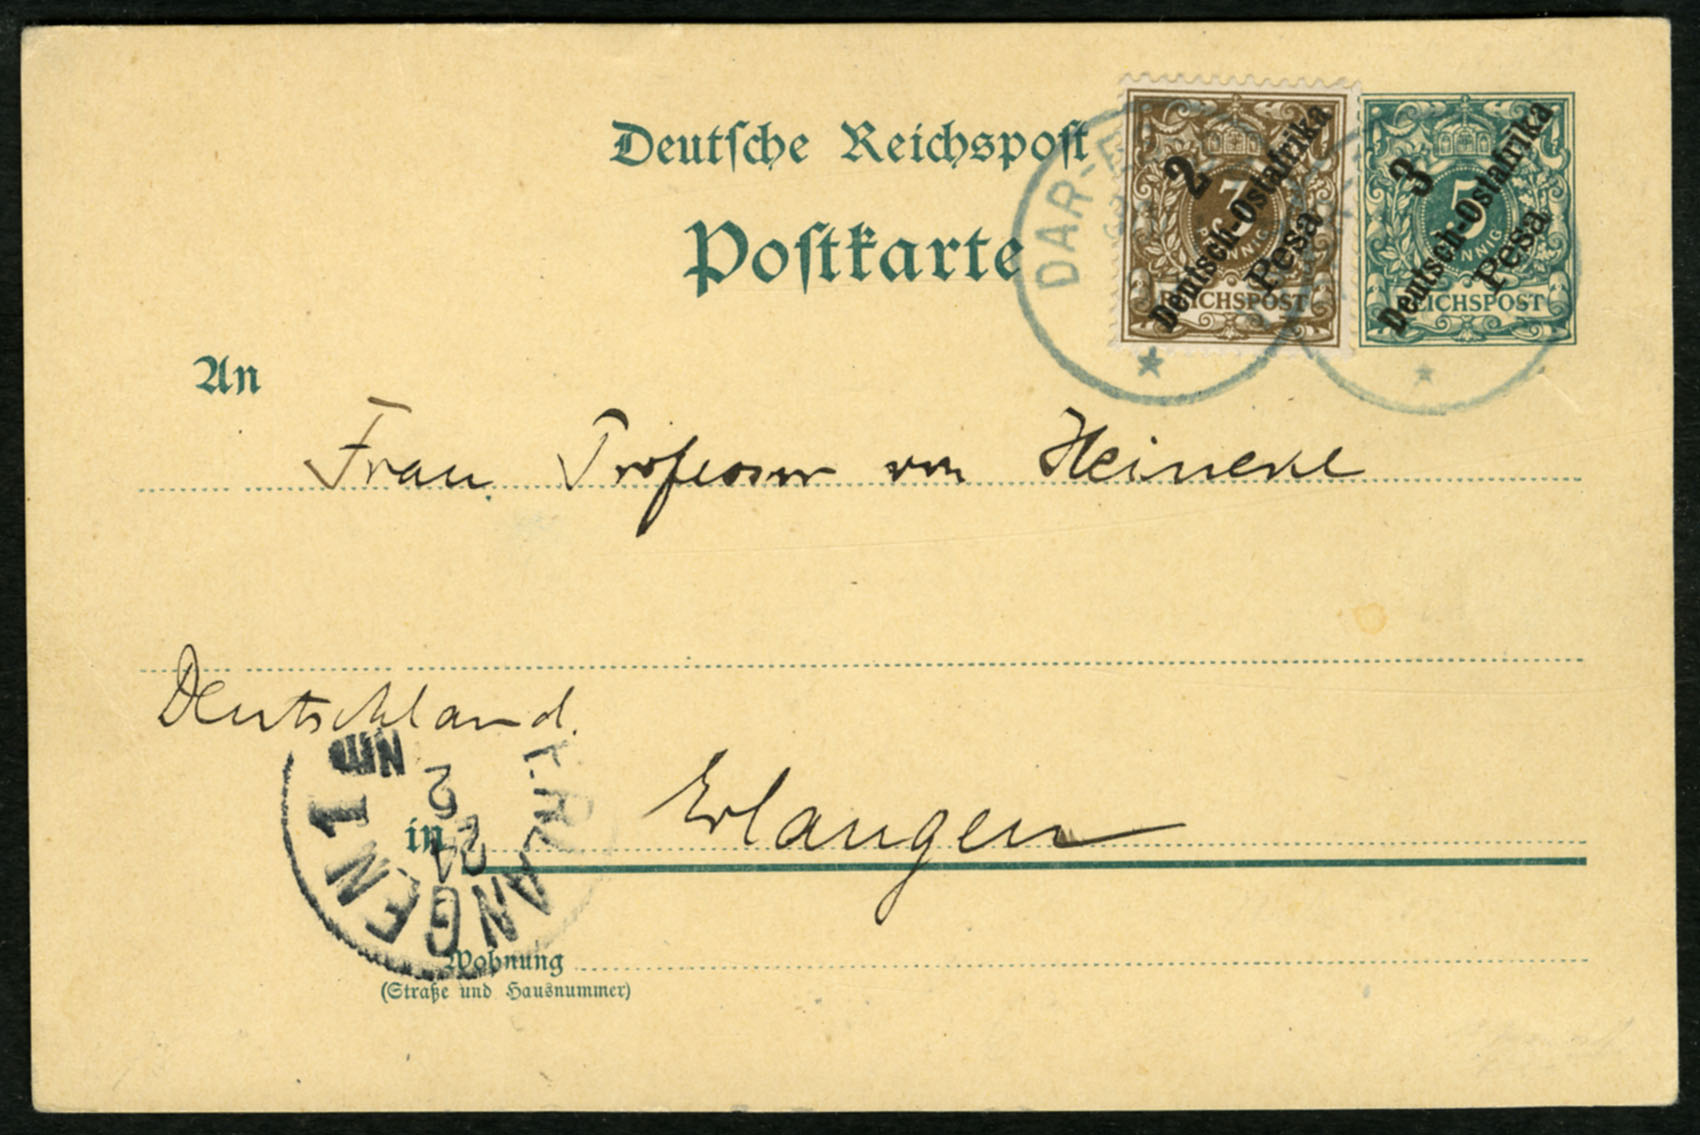 Deutsche Reichspost
Postkarte
DAR-E
2
3
PFENNIG
Deutsch-Ostafrika
Pesa
REICHSPOST
3
5
PFENNIG
Deutsch-Ostafrika
Pesa
REICHSPOST
An
Frau Professor von Heineke
Deutschland.
in Erlangen
ERLANGEN 1
24
2
Nm
Wohnung
(Straße und Hausnummer)